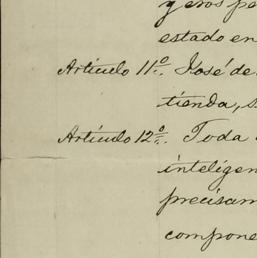 y eros pe
estado en
Artículo 11º. José de
tienda, s
Artículo 12º. Toda
inteligen
precisam
compone